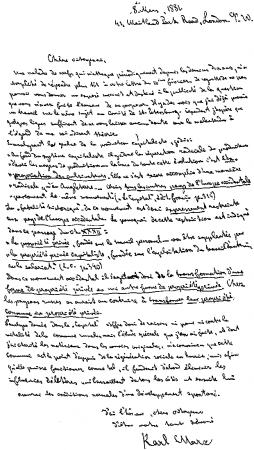 8 Mars, 1881
41, Maitland Park Road, London N.W.
Chère citoyenne,
Une maladie de nerfs qui m'attaque périodiquement depuis les derniers dix ans, m'a
empêché de répondre plus tôt à votre lettre du 16 février. Je regrette de ne pas
pouvoir vous donner un exposé succinct et destiné à la publicité de la question
que vous m'avez fait l'honneur de me proposer. Il y a des mois que j'ai déjà promis
un travail sur le même sujet au Comité de St. Pétersbourg. Cependant j'espère que
quelques lignes suffiront de ne vous laisser aucun doute sur le malentendu à
l'égard de ma soi-disant théorie.
En analysant la genèse de la production capitaliste, je dis:
«Au fond du système capitaliste il y a donc la séparation radicale du producteur
d'avec les moyens de production la base de toute cette évolution c'est l'ex-
propriation des cultivateurs. Elle ne s'est encore accomplie d'une manière
radicale qu'en Angleterre Mais tous les autres pays de l'Europe occidentale
parcourent le même mouvement.» (le Capital, édit. française p. 315)
La "fatalité historique" de ce mouvement est donc expressément restreinte
aux pays de l'Europe occidentale. Le pourquoi de cette restriction est indiqué
dans ce passage du ch. XXXII:
«La propriété privée, fondée sur le travail personnel va être supplantée par
la propriété privée capitaliste, fondée sur l'exploitation du travail d'autrui,
sur le salariat.» (l.c. p. 340)
Dans ce mouvement occidental il s'agit donc de la transformation d'une
forme de propriété privée en une autre forme de propriété privée. Chez
les paysans russes on aurait au contraire à transformer leur propriété
commune en propriété privée.
L'analyse donnée dans le "Capital" n'offre donc de raisons ni pour ni contre la
vitalité de la commune rurale, mais l'étude spéciale que j'en ai faite, et dont
j'ai cherché les matériaux dans les sources originales, m'a convaincu que cette
commune est le point d'appui de la régénération sociale en Russie, mais afin
qu'elle puisse fonctionner comme tel, il faudrait d'abord éliminer les
influences délétères qui l'assaillent de tous les côtés et ensuite lui
assurer les conditions normales d'un développement spontané.
J'ai l'honneur, chère citoyenne,
d'être votre tout dévoué
Karl Marx